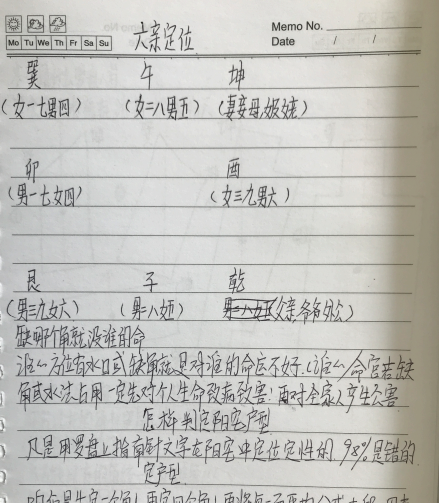 Memo No.
Mo Tu We Th Fr Sa Su
六亲定位
Date / /
巽 午 坤
(女一七男四) (女二八男五) (妻妾母,奶奶)
卯 酉
(男一七女四) (女三九男六)
艮 子 乾
(男三九女六) (男二八女五) 父亲,爷爷外公)
缺哪个角就没谁的命
谁的方位有水口或缺角就是对谁的命运不好.(谁的命宫若缺
角或水法占用一定先对个人生命致病致害;再对全家人产生公害
怎样判定阳宅户型
凡是用罗盘上指南针文字在阳宅中定位定性的,98%是错的
定户型